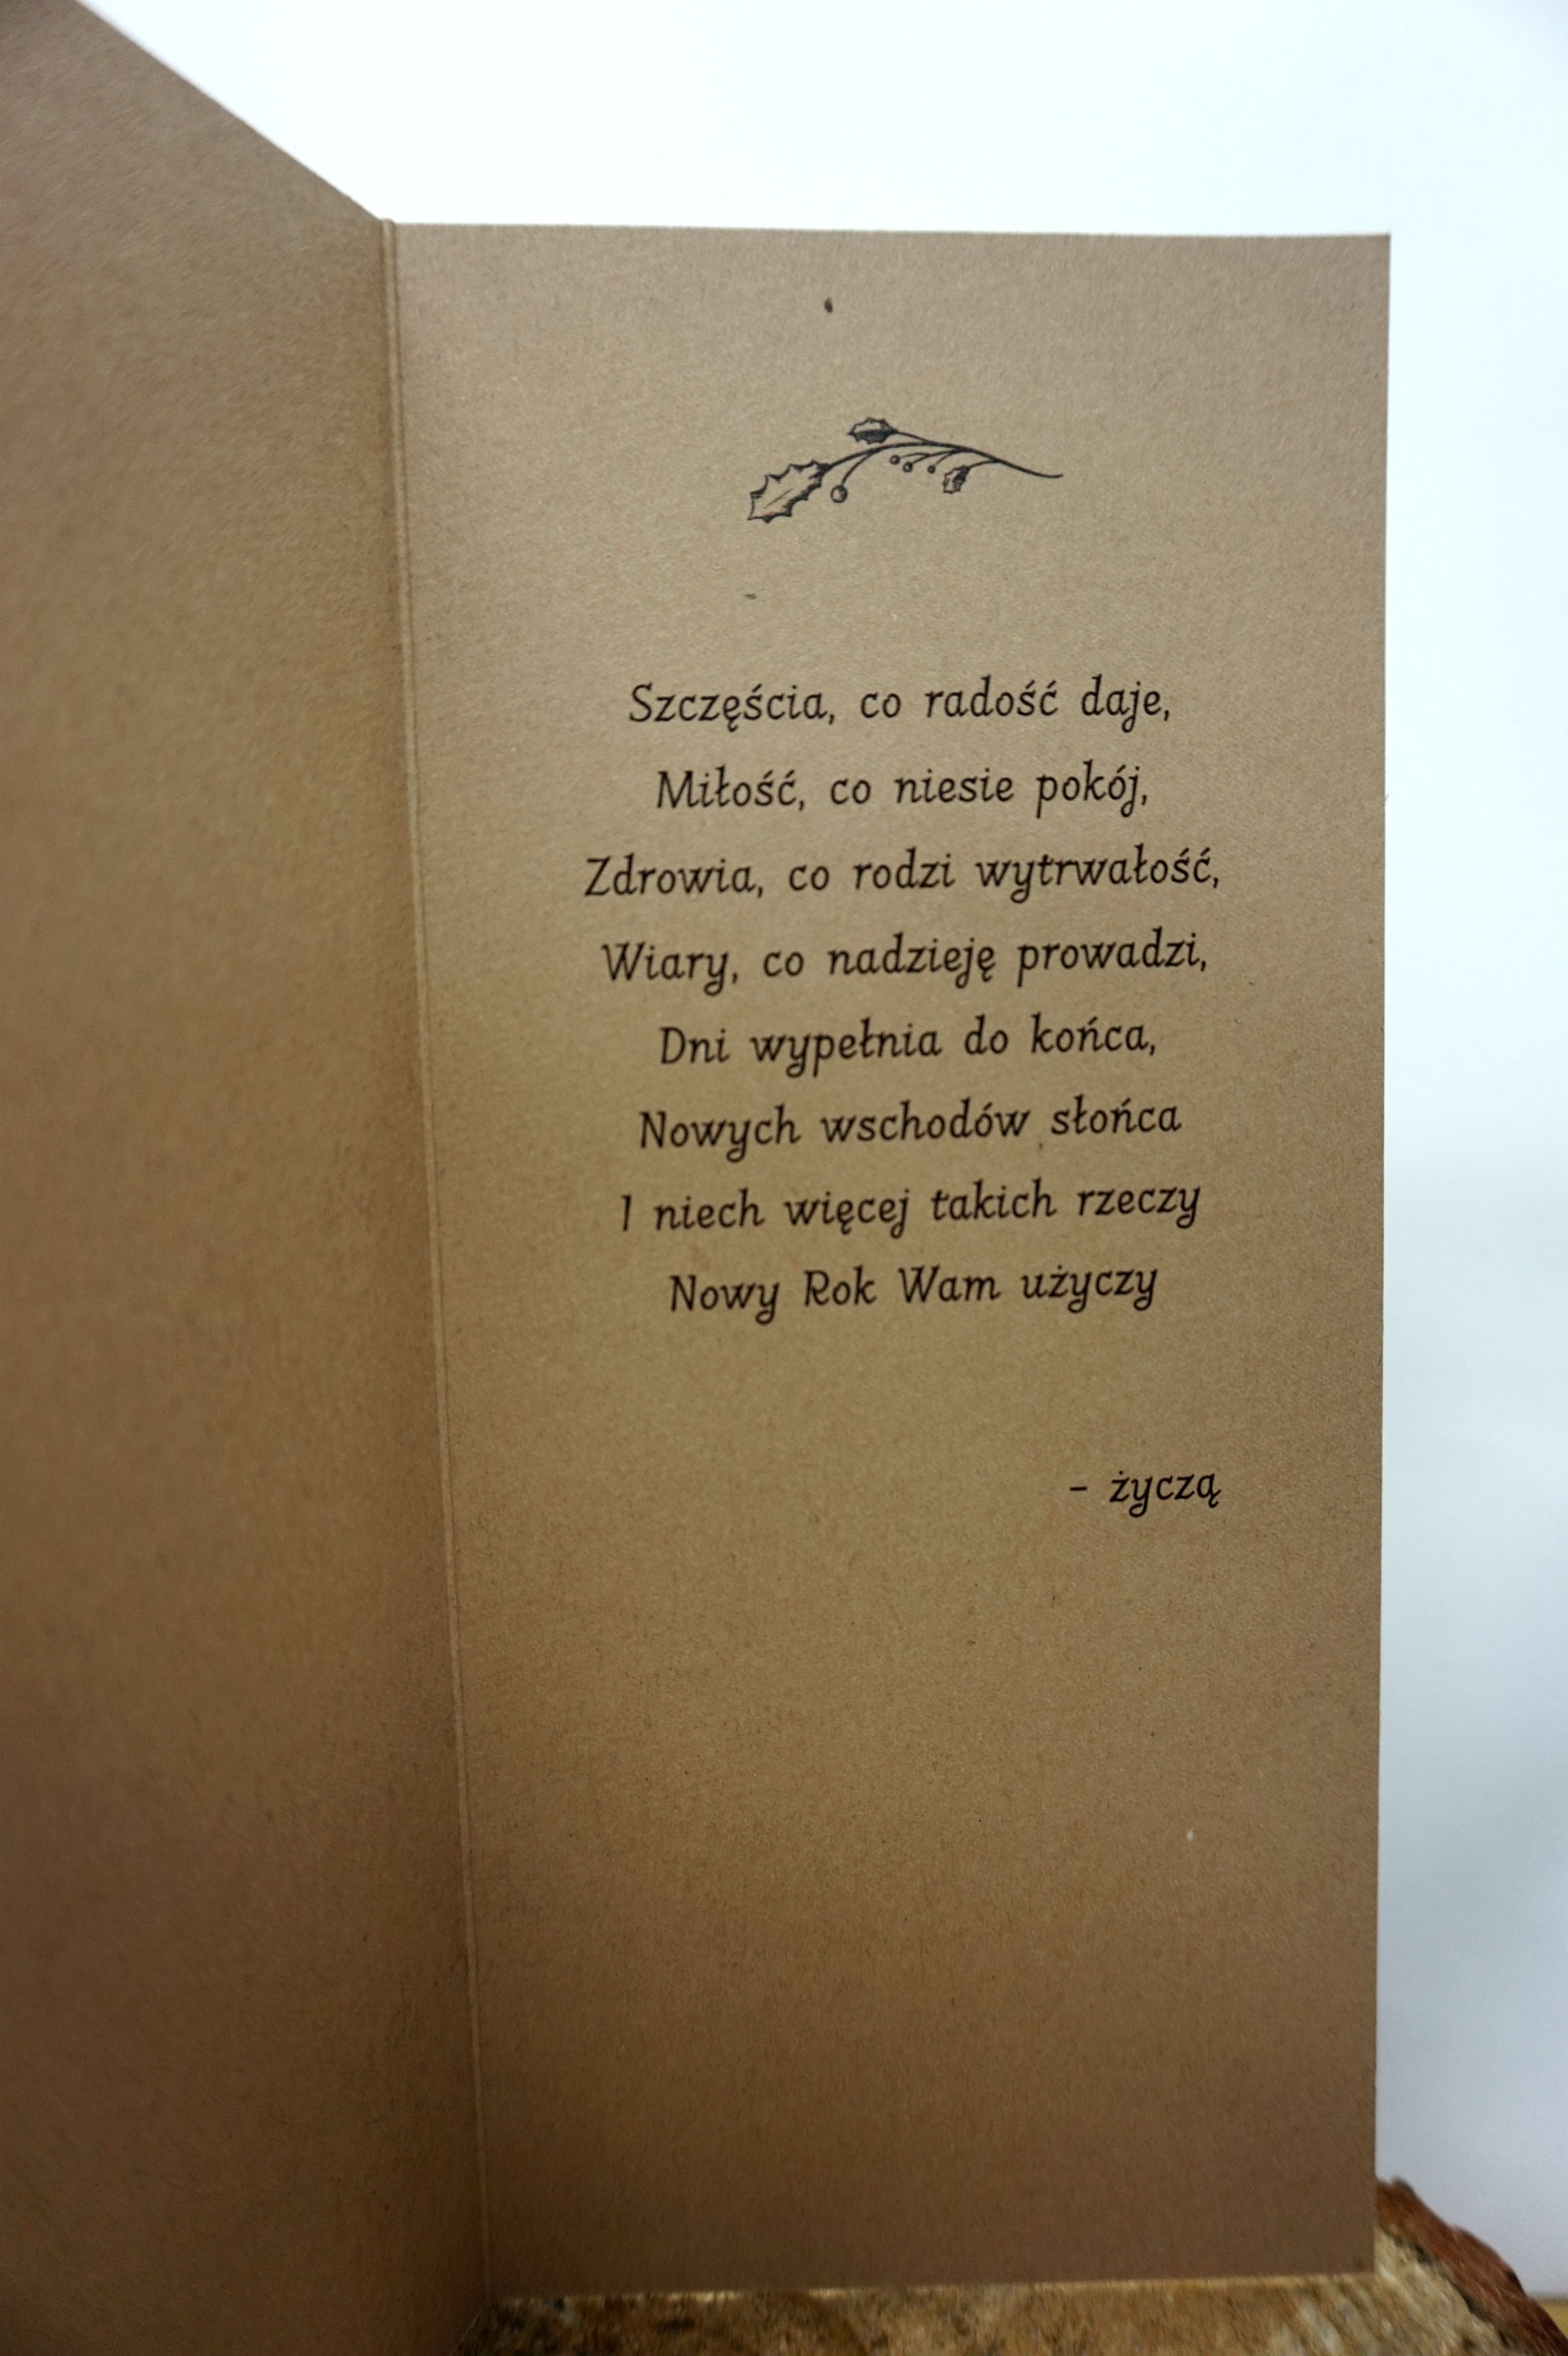 Szczęścia, co radość daje,
Miłość, co niesie pokój,
Zdrowia, co rodzi wytrwałość,
Wiary, co nadzieję prowadzi,
Dni wypełnia do końca,
Nowych wschodów słońca
I niech więcej takich rzeczy
Nowy Rok Wam użyczy
- życzą